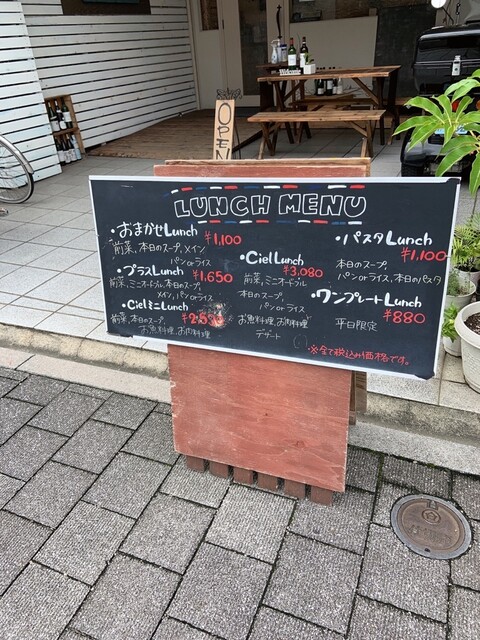 Welcome
OPEN
LUNCH MENU
・おまかせLunch ¥1,100
前菜、本日のスープ、メイン
パンorライス
・プラスLunch ¥1,650
前菜、ミニオードブル、本日のスープ、
メイン、パンorライス
・Cielミニ Lunch
前菜、本日のスープ、
お魚料理、お肉料理
・Ciel Lunch
¥3,080
前菜、ミニオードブル
本日のスープ、
パンorライス
お魚料理、お肉料理
デザート
・パスタLunch
¥1,100
本日のスープ、
パンorライス、本日のパスタ
・ワンプレートLunch
¥880
平日限定
※全て税込み価格です。